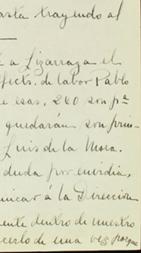 asta trayendo al
a Lizarraga el
fects. de labor Pablo
e esas, 260 son p^a
quedarán son prin-
Luis de la Mora.
duda por envidia,
nicar á la Direccion
ente dentro de nuestro
cerlo de una vez porque